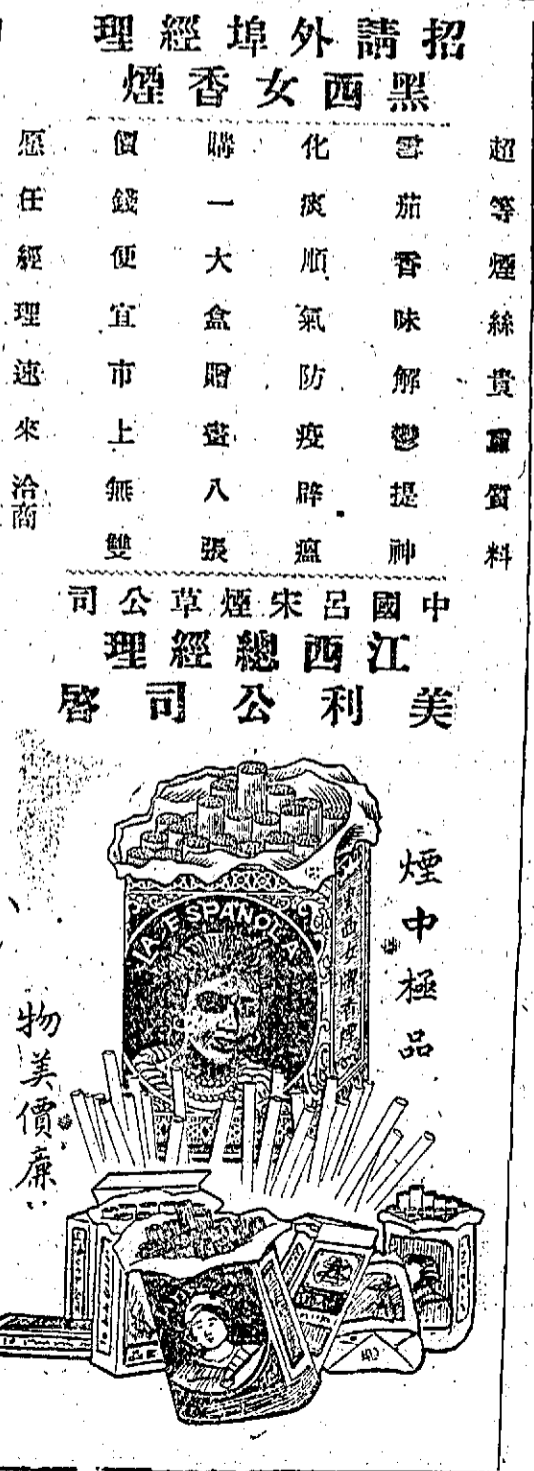 招請外埠經理
黑西女香煙
超等煙絲貴重質料
雪茄香味解鬱提神
化痰順氣防疫辟瘟
購一大盒贈畫八張
價錢便宜市上無雙
愿任經理速來洽商
中國呂宋煙草公司
江西總經理
美利公司啓
煙中極品
物美價廉
LA ESPANOLA